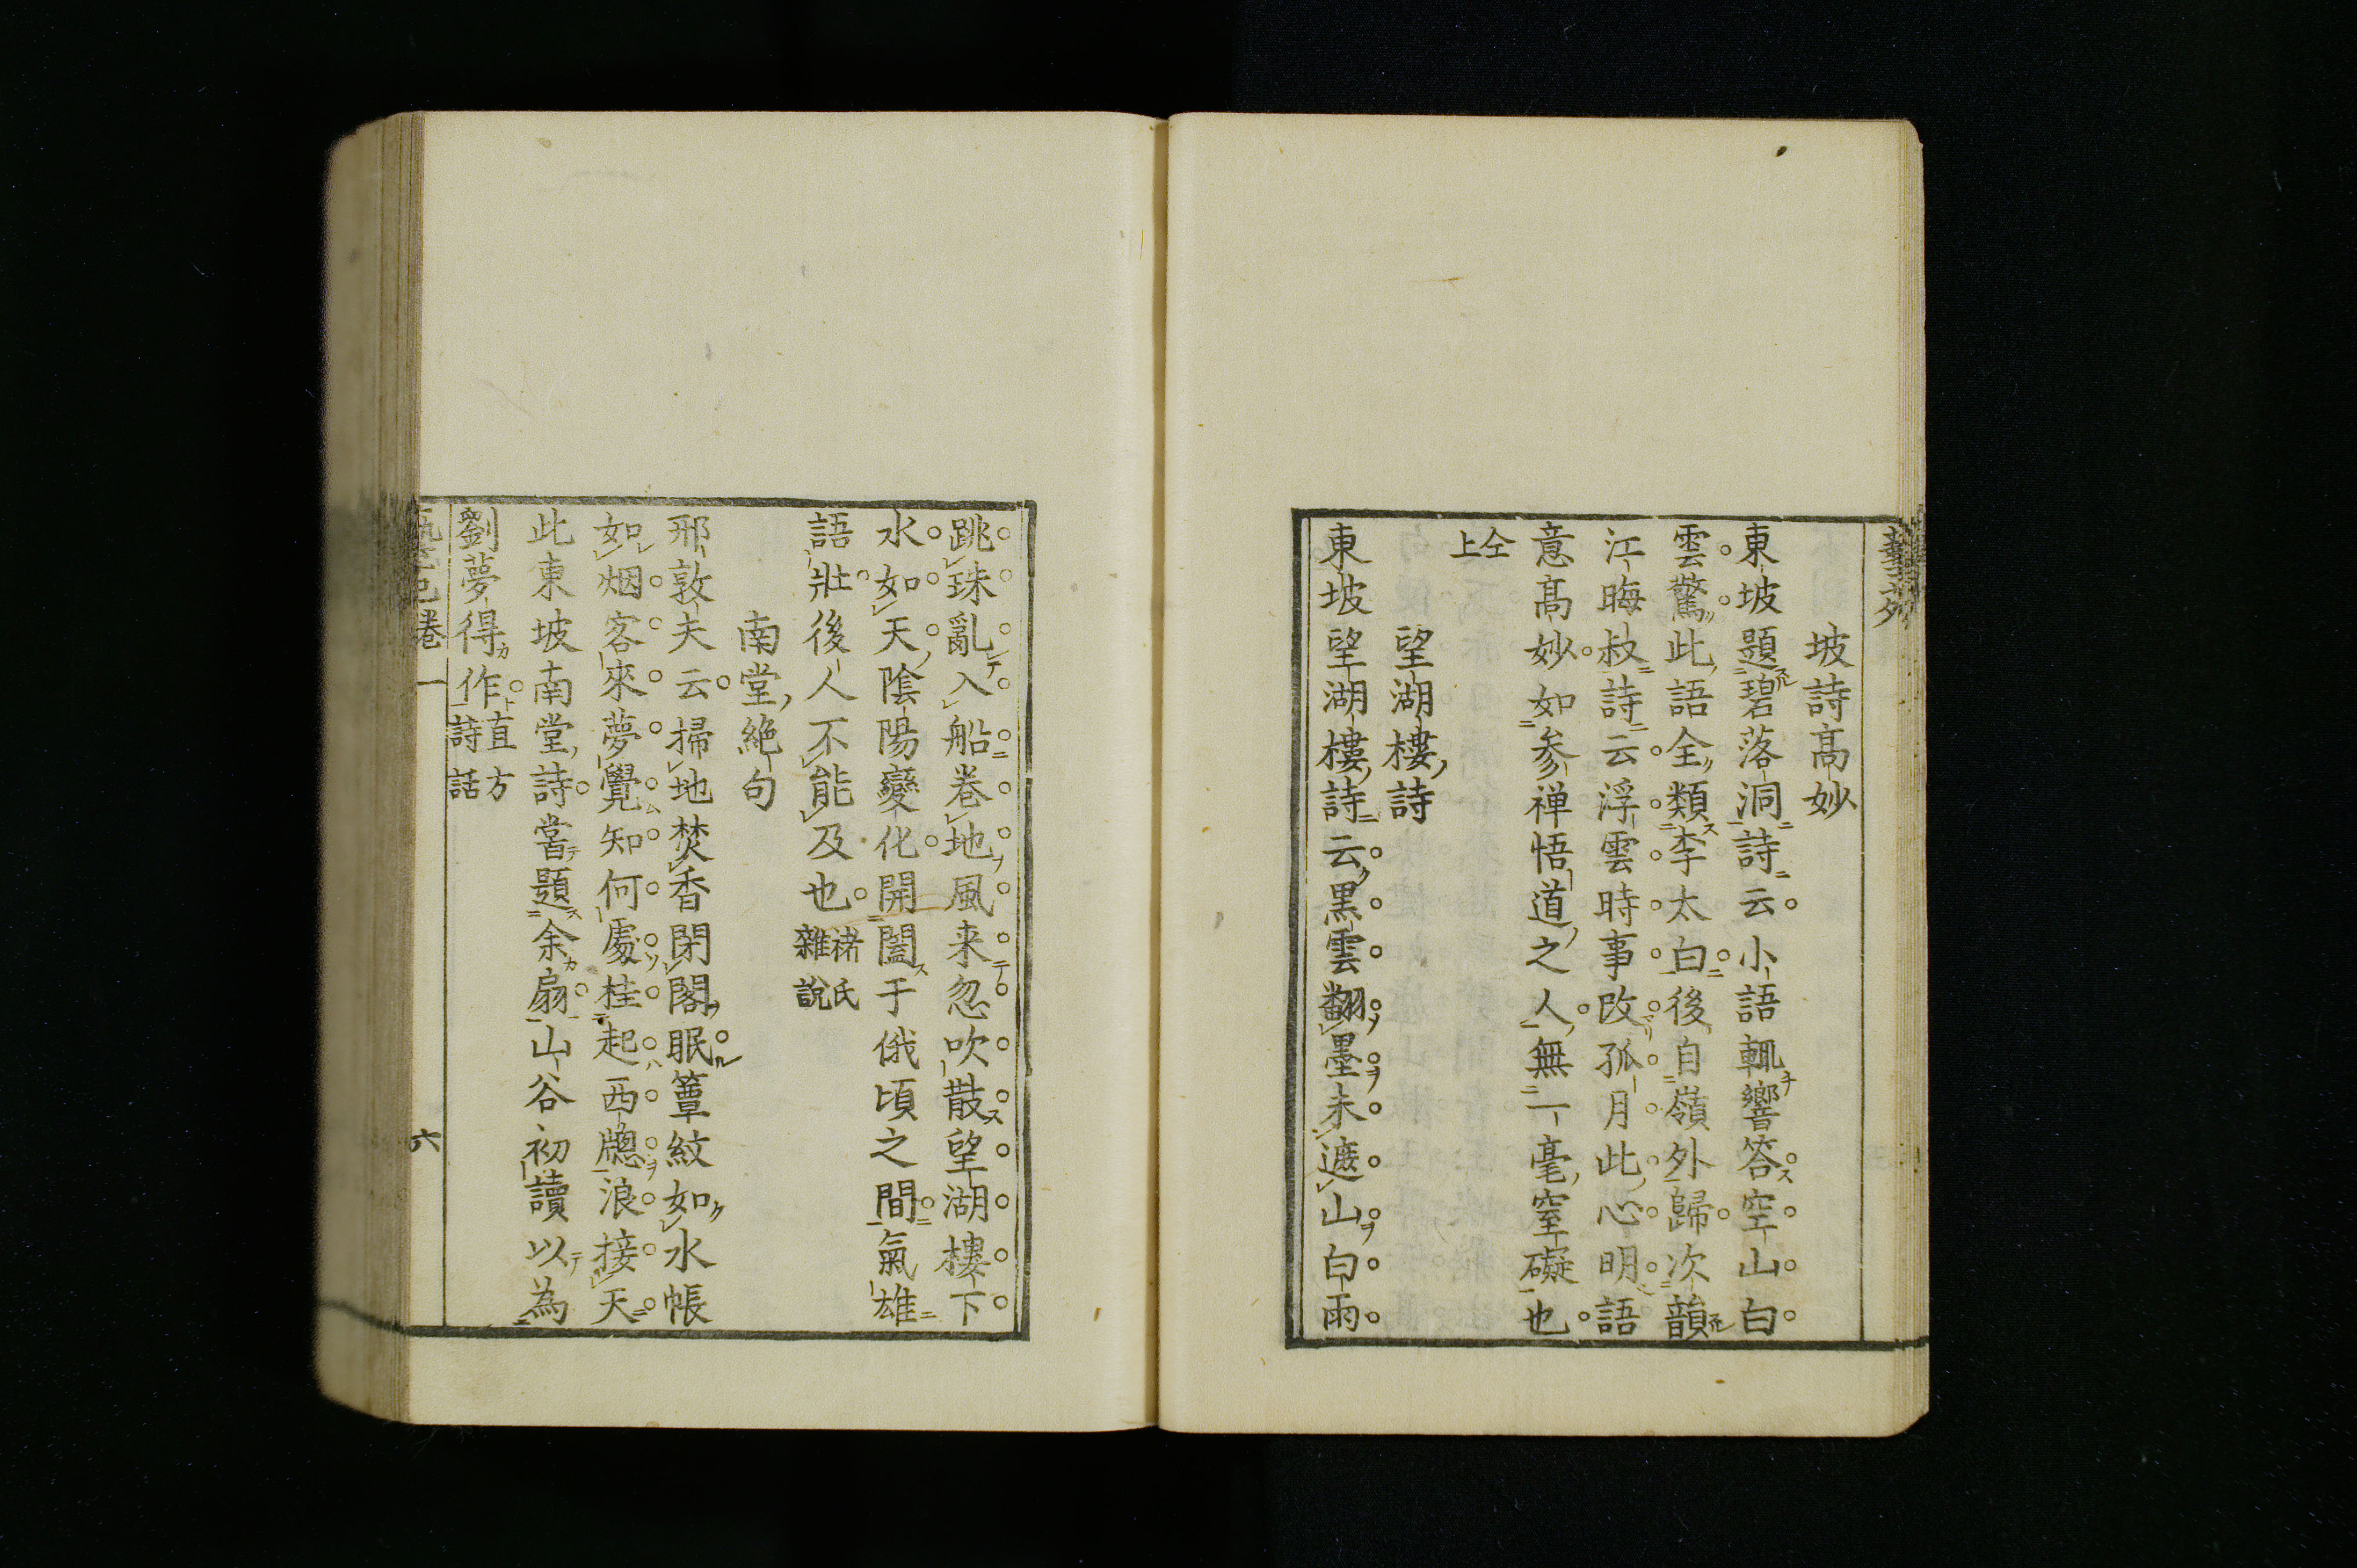 坡詩髙妙
東坡題碧落洞詩云小語輒響答空山白
雲驚此語全類李太白後自嶺外歸次韻
江晦叔詩云浮雲時事改孤月此心明語
意髙妙如参禅悟道之人無一毫窒礙也
仝上
望湖樓詩
東坡望湖樓詩云黒雲翻墨未遮山白雨
跳珠亂入船卷地風来忽吹散望湖樓下
水如天陰陽變化開闔于俄頃之間氣雄
語壯後人不能及也 禇氏雜說
南堂絶句
邢敦夫云掃地焚香閉閣眠簟紋如水帳
如烟客來夢覺知何處桂起西牕浪接天
此東坡南堂詩嘗題余扇山谷初讀以為
劉夢得作 直方詩話
卷一
六